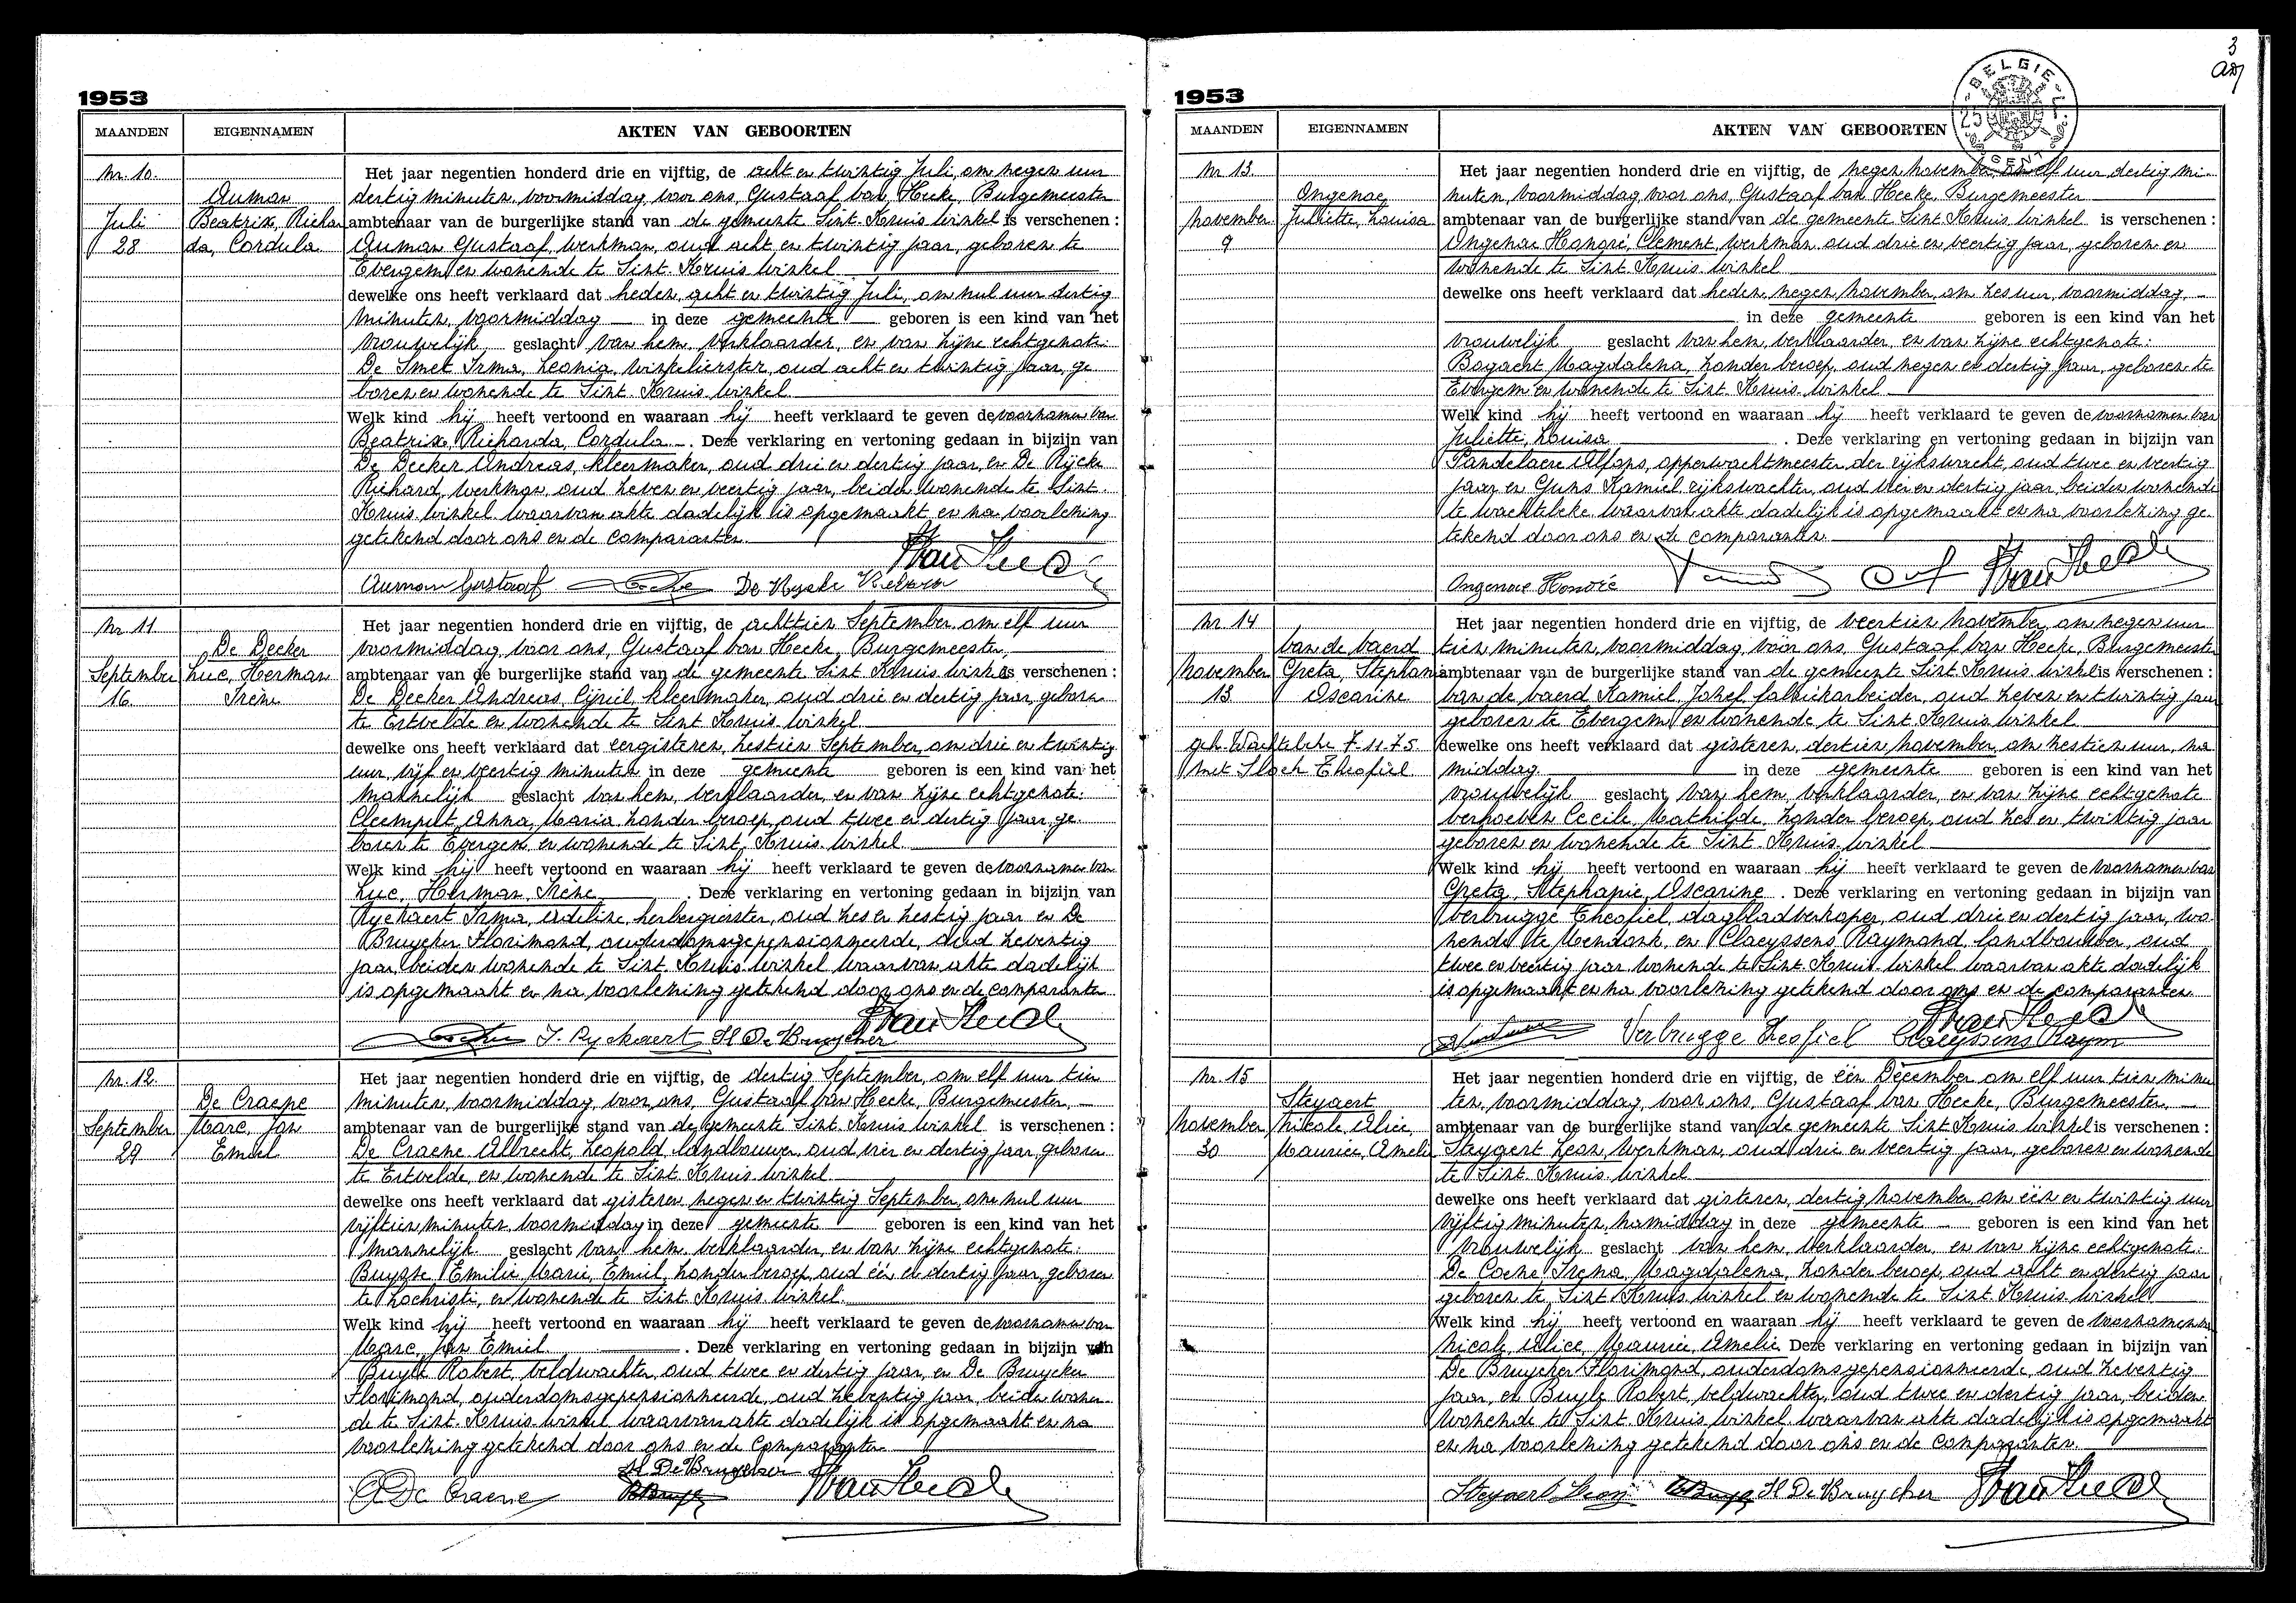 1953
MAANDEN EIGENNAMEN AKTEN VAN GEBOORTEN
Nr. 10.
Auman
Juli Beatrix, Richar
28 da, Cordula
Het jaar negentien honderd drie en vijftig, de acht en twintig Juli, om negen uur
dertig minuten, voormiddag, voor ons, Gustaaf Van Hecke, Burgemeester
ambtenaar van de burgerlijke stand van de gemeente Sint-Kruis-Winkel is verschenen :
Auman Gustaaf, werkman, oud acht en twintig jaar, geboren te
Evergem en wonende te Sint-Kruis-Winkel
dewelke ons heeft verklaard dat heden, acht en twintig Juli, om nul uur dertig
minuten, voormiddag in deze gemeente geboren is een kind van het
vrouwelijk geslacht van hem, verklaarder, en van zijne echtgenote:
De Smet Irma, Leonia, winkelierster, oud acht en twintig jaar, ge-
boren en wonende te Sint-Kruis-Winkel
Welk kind hij heeft vertoond en waaraan hij heeft verklaard te geven de voornamen van
Beatrix, Richarda, Cordula. Deze verklaring en vertoning gedaan in bijzijn van
De Decker Andreas, kleermaker, oud drie en dertig jaar, en De Rijcke
Richard, werkman, oud zeven en veertig jaar, beiden wonende te Sint-
Kruis-Winkel waarvan akte dadelijk is opgemaakt en na voorlezing
getekend door ons en de comparanten.
Auman Gustaaf
Nr 11
De Decker
September Luc, Herman
16 Irène
Het jaar negentien honderd drie en vijftig, de achttien September, om elf uur
voormiddag, voor ons, Gustaaf Van Hecke, Burgemeester,
ambtenaar van de burgerlijke stand van de gemeente Sint-Kruis-Winkel is verschenen :
De Decker Andreas, Cyriel, kleermaker, oud drie en dertig jaar, geboren
te Ertvelde en wonende te Sint-Kruis-Winkel
dewelke ons heeft verklaard dat eergisteren, zestien September, om drie en twintig
uur, vijf en veertig minuten in deze gemeente geboren is een kind van het
mannelijk geslacht van hem, verklaarder, en van zijne echtgenote:
Cleemput Anna, Maria, zonder beroep, oud twee en dertig jaar, ge-
boren te Evergem en wonende te Sint-Kruis-Winkel
Welk kind hij heeft vertoond en waaraan hij heeft verklaard te geven de voornamen van
Luc, Herman, Irène. Deze verklaring en vertoning gedaan in bijzijn van
Ryckaert Irma, Adeline, herbergierster, oud zes en zestig jaar en De
Bruycker Florimond, ouderdomsgepensionneerde, oud zeventig
jaar, beiden wonende te Sint-Kruis-Winkel waarvan akte dadelijk
is opgemaakt en na voorlezing getekend door ons en de comparanten
I. Ryckaert Fl De Bruycker
Nr. 12.
De Craene
September Marc, Jan
29 Emiel
Het jaar negentien honderd drie en vijftig, de dertig September, om elf uur tien
minuten, voormiddag, voor ons, Gustaaf Van Hecke, Burgemeester,
ambtenaar van de burgerlijke stand van de gemeente Sint-Kruis-Winkel is verschenen :
De Craene Albrecht, Leopold, landbouwer, oud vier en dertig jaar, geboren
te Ertvelde, en wonende te Sint-Kruis-Winkel
dewelke ons heeft verklaard dat gisteren, negen en twintig September, om nul uur
vijftien minuten, voormiddag in deze gemeente geboren is een kind van het
mannelijk geslacht van hem, verklaarder, en van zijne echtgenote:
Buysse Emilie, Marie, Emiel, zonder beroep, oud één en dertig jaar, geboren
te Lochristi, en wonende te Sint-Kruis-Winkel.
Welk kind hij heeft vertoond en waaraan hij heeft verklaard te geven de voornamen van
Marc, Jan Emiel. Deze verklaring en vertoning gedaan in bijzijn van
Buyle Robert, veldwachter, oud twee en dertig jaar, en De Bruycker
Florimond, ouderdomsgepensionneerde, oud zeventig jaar, beiden wonen-
de te Sint-Kruis-Winkel waarvan akte dadelijk is opgemaakt en na
voorlezing getekend door ons en de comparanten
Fl De Bruycker
A De Craene
3
1953
BELGIE
25
GENT
MAANDEN EIGENNAMEN AKTEN VAN GEBOORTEN
Nr 13.
Ongenae
November Juliette, Louisa
9
Het jaar negentien honderd drie en vijftig, de negen November om elf uur dertig mi-
nuten, voormiddag voor ons, Gustaaf Van Hecke, Burgemeester
ambtenaar van de burgerlijke stand van de gemeente Sint-Kruis-Winkel is verschenen :
Ongenae Honoré, Clement, werkman, oud drie en veertig jaar, geboren en
wonende te Sint-Kruis-Winkel
dewelke ons heeft verklaard dat heden, negen November, om zes uur, voormiddag,
in deze gemeente geboren is een kind van het
vrouwelijk geslacht van hem, verklaarder, en van zijne echtgenote:
Bogaert Magdalena, zonder beroep, oud negen en dertig jaar, geboren te
Evergem en wonende te Sint-Kruis-Winkel
Welk kind hij heeft vertoond en waaraan hij heeft verklaard te geven de voornamen van
Juliette, Louisa. Deze verklaring en vertoning gedaan in bijzijn van
Pandelaere Alfons, opperwachtmeester der rijkswacht, oud twee en veertig
jaar en Guns Kamiel rijkswachter, oud vier en dertig jaar, beiden wonende
te Wachtebeke waarvan akte dadelijk is opgemaakt en na voorlezing ge-
tekend door ons en de comparanten.
Ongenae Honoré
Nr 14
Van de Vaerd
November Greta, Stephanie
13 Oscarine
geh. Wachtebeke 7.11.75
met Sloch Theofiel
Het jaar negentien honderd drie en vijftig, de veertien November, om negen uur
tien minuten, voormiddag, voor ons, Gustaaf Van Hecke, Burgemeester
ambtenaar van de burgerlijke stand van de gemeente Sint-Kruis-Winkel is verschenen :
Van de Vaerd Kamiel, Jozef, fabriekarbeider, oud zeven en twintig jaar
geboren te Evergem en wonende te Sint-Kruis-Winkel
dewelke ons heeft verklaard dat gisteren, dertien November, om zestien uur, na-
middag in deze gemeente geboren is een kind van het
vrouwelijk geslacht, van hem, verklaarder, en van zijne echtgenote
Verhoeven Cecile, Mathilde, zonder beroep, oud zes en twintig jaar
geboren en wonende te Sint-Kruis-Winkel
Welk kind hij heeft vertoond en waaraan hij heeft verklaard te geven de voornamen van
Greta, Stephanie, Oscarine. Deze verklaring en vertoning gedaan in bijzijn van
Verbrugge Theofiel, dagbladverkoper, oud drie en dertig jaar, wo-
nende te Mendonk, en Claeyssens Raymond, landbouwer, oud
twee en veertig jaar wonende te Sint-Kruis-Winkel waarvan akte dadelijk
is opgemaakt en na voorlezing getekend door ons en de comparanten.
Verbrugge Teofiel Claeyssens Raym
Nr. 15
Steyaert
November Nicole Alice,
30 Maurice, Amelie
Het jaar negentien honderd drie en vijftig, de één December om elf uur tien minu-
ten, voormiddag, voor ons, Gustaaf Van Hecke, Burgemeester,
ambtenaar van de burgerlijke stand van de gemeente Sint-Kruis-Winkel is verschenen :
Steyaert Leon, werkman, oud drie en veertig jaar, geboren en wonende
te Sint-Kruis-Winkel
dewelke ons heeft verklaard dat gisteren, dertig November om één en twintig uur
vijftig minuten, namiddag in deze gemeente geboren is een kind van het
vrouwelijk geslacht van hem, verklaarder, en van zijne echtgenote:
De Coene Irena, Magdalena, zonder beroep, oud acht en dertig jaar
geboren te Sint-Kruis-Winkel en wonende te Sint-Kruis-Winkel
Welk kind hij heeft vertoond en waaraan hij heeft verklaard te geven de voornamen
Nicole Alice, Maurice, Amelie Deze verklaring en vertoning gedaan in bijzijn van
De Bruycker Florimond, ouderdomsgepensionneerde, oud zeventig
jaar, en Buyle Robert, veldwachter, oud twee en dertig jaar, beiden
wonende te Sint-Kruis-Winkel waarvan akte dadelijk is opgemaakt
en na voorlezing getekend door ons en de comparanten.
Steyaert Leon Fl De Bruycker